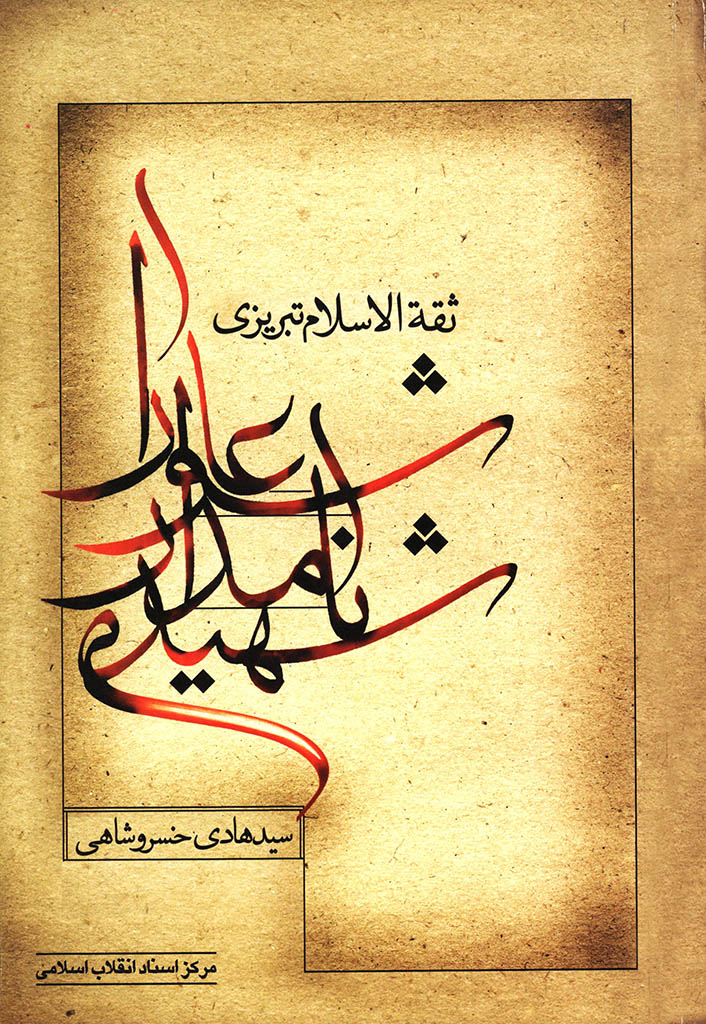 ثقة الاسلام تبریزی
عاشورا
نامدار
شهیدی
سید هادی خسروشاهی
مرکز اسناد انقلاب اسلامی